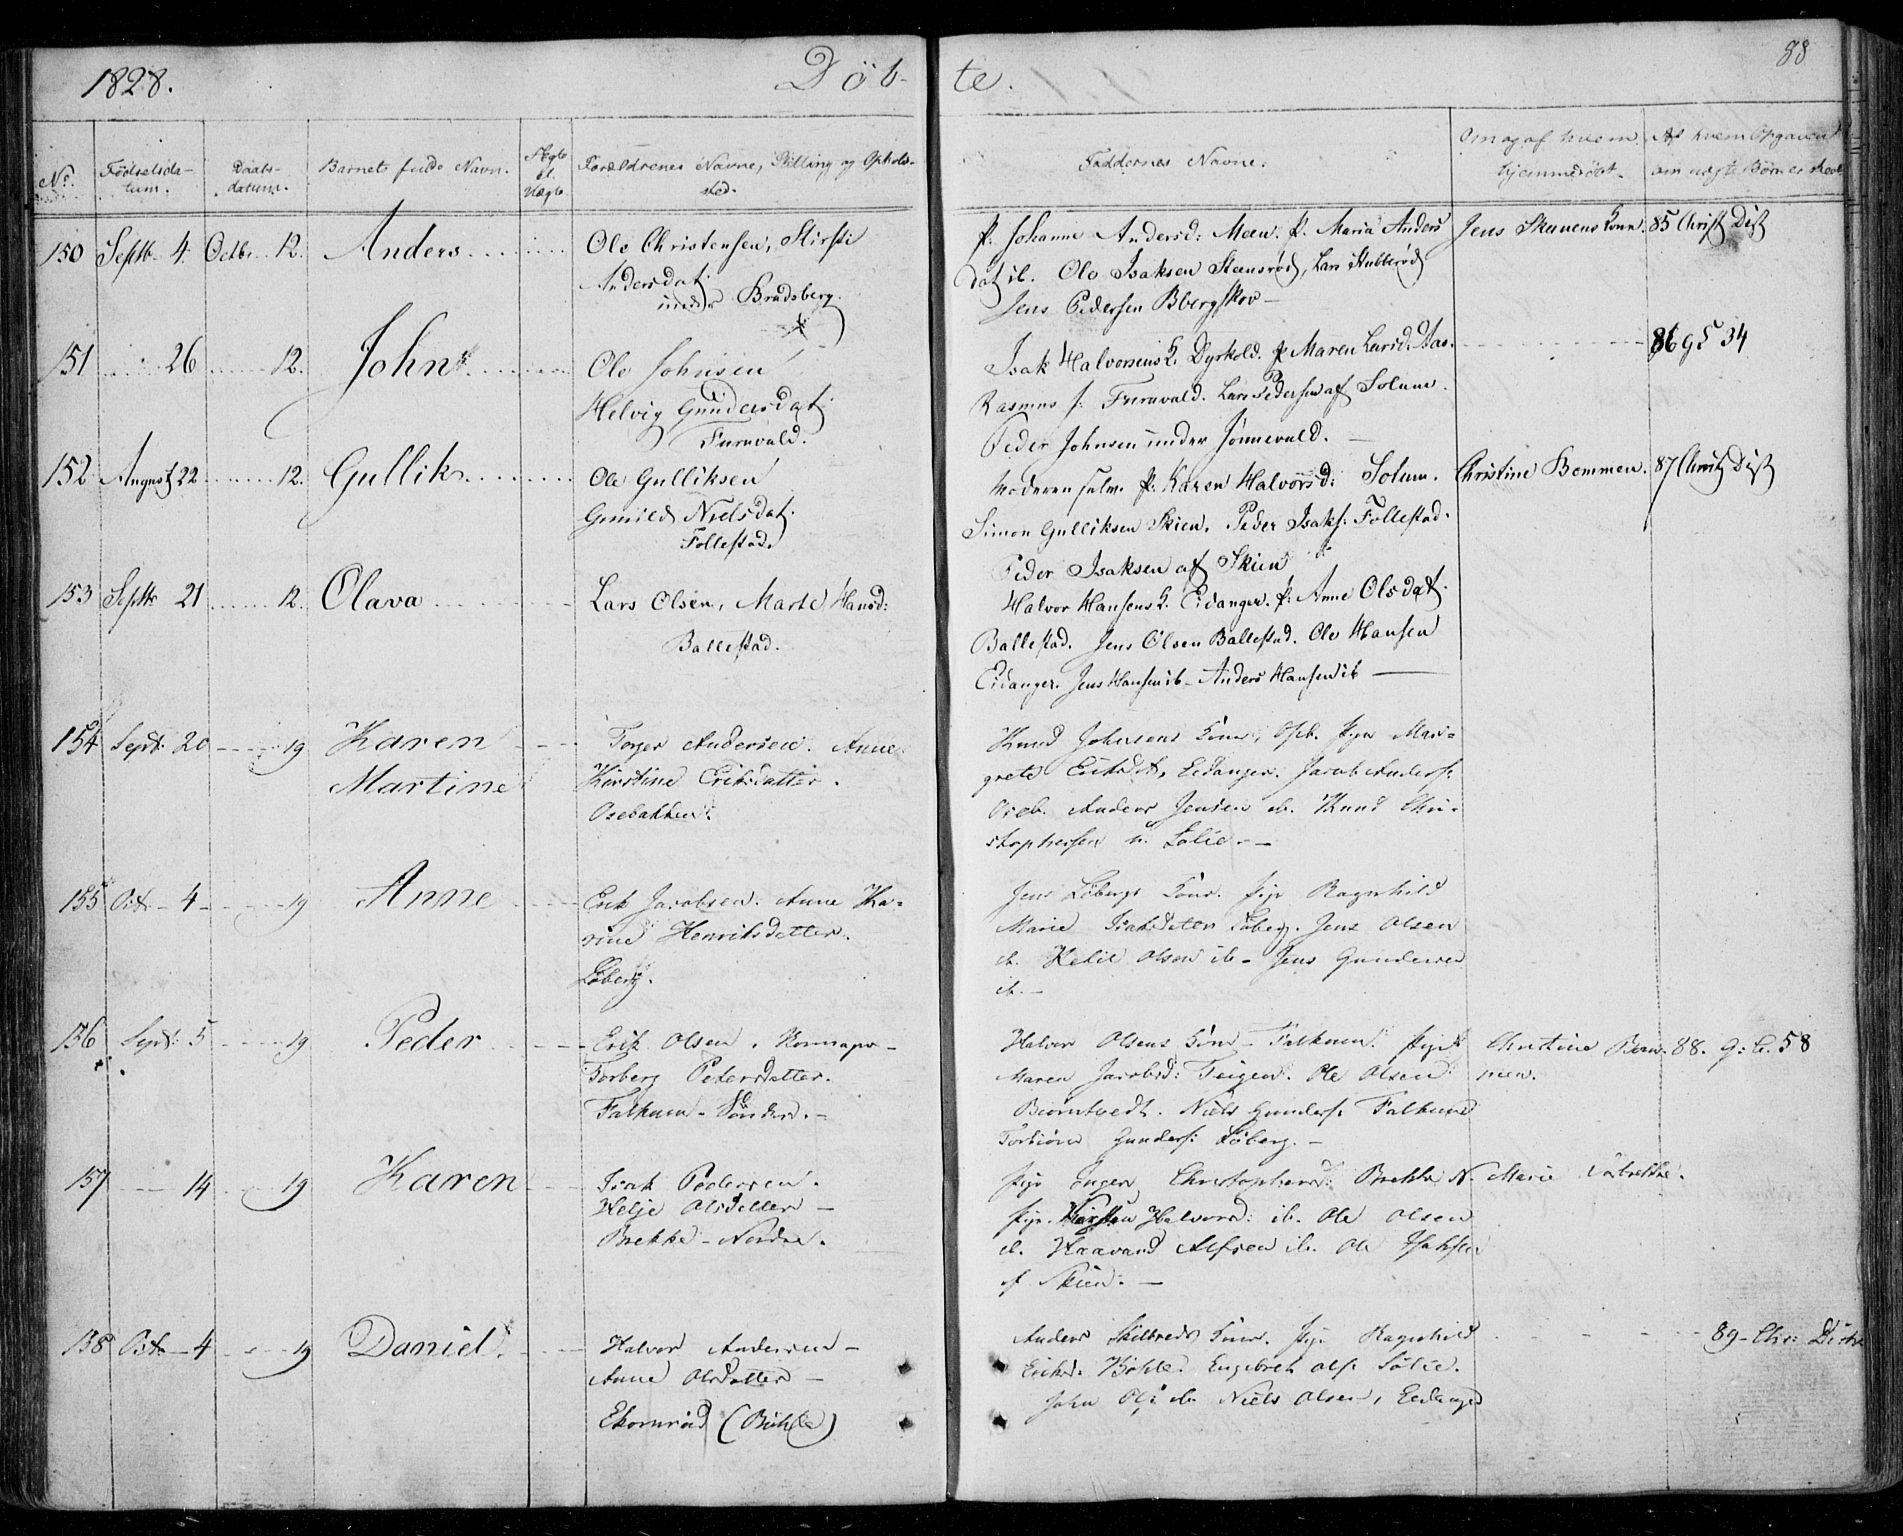 1828.
Døb-
te.
88
No.
Fødselsda-
tum.
Daabs-
datum.
Barnets fulde Navn.
Ægte
el.
Uægte
Forældrenes Navne, Stilling og Opholds-
sted.
Faddernes Navne.
Om og af hvem
hjemmedøbt.
Af hvem Opgaven
om uægte Børn er skeet
150 Septb. 4. Octbr. 12. Anders
Ole Christensen, Kirsti
Andersdat.
under Bradsberg.
P. Johanne Andersd: Meen. P. Maria Anders
dat ib. Ole Isaksen Steensrød, Lars Stubberød
Jens Pedersen Bbergskov
Jens Skavens Kone. 85 Christ Dist
151 26 12. John
Ole Johnsen
Helvig Gundersdat.
Furuvald.
Isak Halvorsens K. Dyrkold. P. Maren Larsd. Aas.
Rasmus f: Furuvald. Lars Pedersen af Solum.
Peder Johnsen under Jønnevald.
86 g S 34
152 August 22 12. Gullik
Ole Gulliksen
Gunild Nielsdat.
Follestad.
Moderen selv. P. Karen Halvorsd: Solum.
Simon Gulliksen Skien. Peder Isaks. Follestad.
Peder Isaksen af Skien
Christine Bommen. 87 Christ Dist
153 Septb 21 12. Olava
Lars Olsen, Marte Hansd:
Ballestad.
Halvor Hansens K. Eidanger. P: Anne Olsdat.
Ballestad. Jens Olsen Ballestad. Ole Hansen
Eidanger. Jens Hansen ib - Anders Hansen ib
154 Sept: 20 19 Karen
Martine
Torger Andersen. Anne
Kirstine Eriksdatter.
Osebakken.
Knud Johnsens Kone, Oseb. Pige Mar-
grete Eriksdt, Eidanger. Jacob Anders:
Oseb. Anders Jensen ib. Knud Chri-
stophersen u. Lølie.
155 Octr - 4 - 19 Anne
Erik Jacobsen. Anne Ka-
rine Henriksdatter.
Løberg.
Jens Løbergs Kone. Pige Ragnhild
Marie Isaksdatter Løberg. Jens Olsen
ib. Kield Olsen ib - Jens Gundersen
ib.
156 Sept: 5 19 Peder
Erik Olsen.
Torberg Pedersdatter.
Falkum - Søndre.
Halvor Olsens Kone - Falkum. Pige
Maren Jacobsd: Teigen. Ole Olsen
Biørntvedt. Niels Gunders: Falkum
Torbiørn Gunders: Løberg.
Christine Bom-
men.
88. g: b. 58
157 14 19 Karen
Isak Pedersen.
Helje Olsdatter
Brekke - Nordre.
Pige Inger Christophersd: Brekke N.
Pige. Kirsten Halvorsd: ib. Ole Olsen
ib. Haavard Alfsen ib. Ole Isaksen
af Skien.
Marie
158 Octr - 4 19 Daniel.
Halvor Andersen
Anne Olsdatter
Ekornrød (Bøhle)
Anders Skilbreds Kone. Pige Ragnhild
Eriksd. Bøhle. Engebret Ols: Lølie.
John Ols: ib Niels Olsen, Eidanger
89 - Chr: Dist